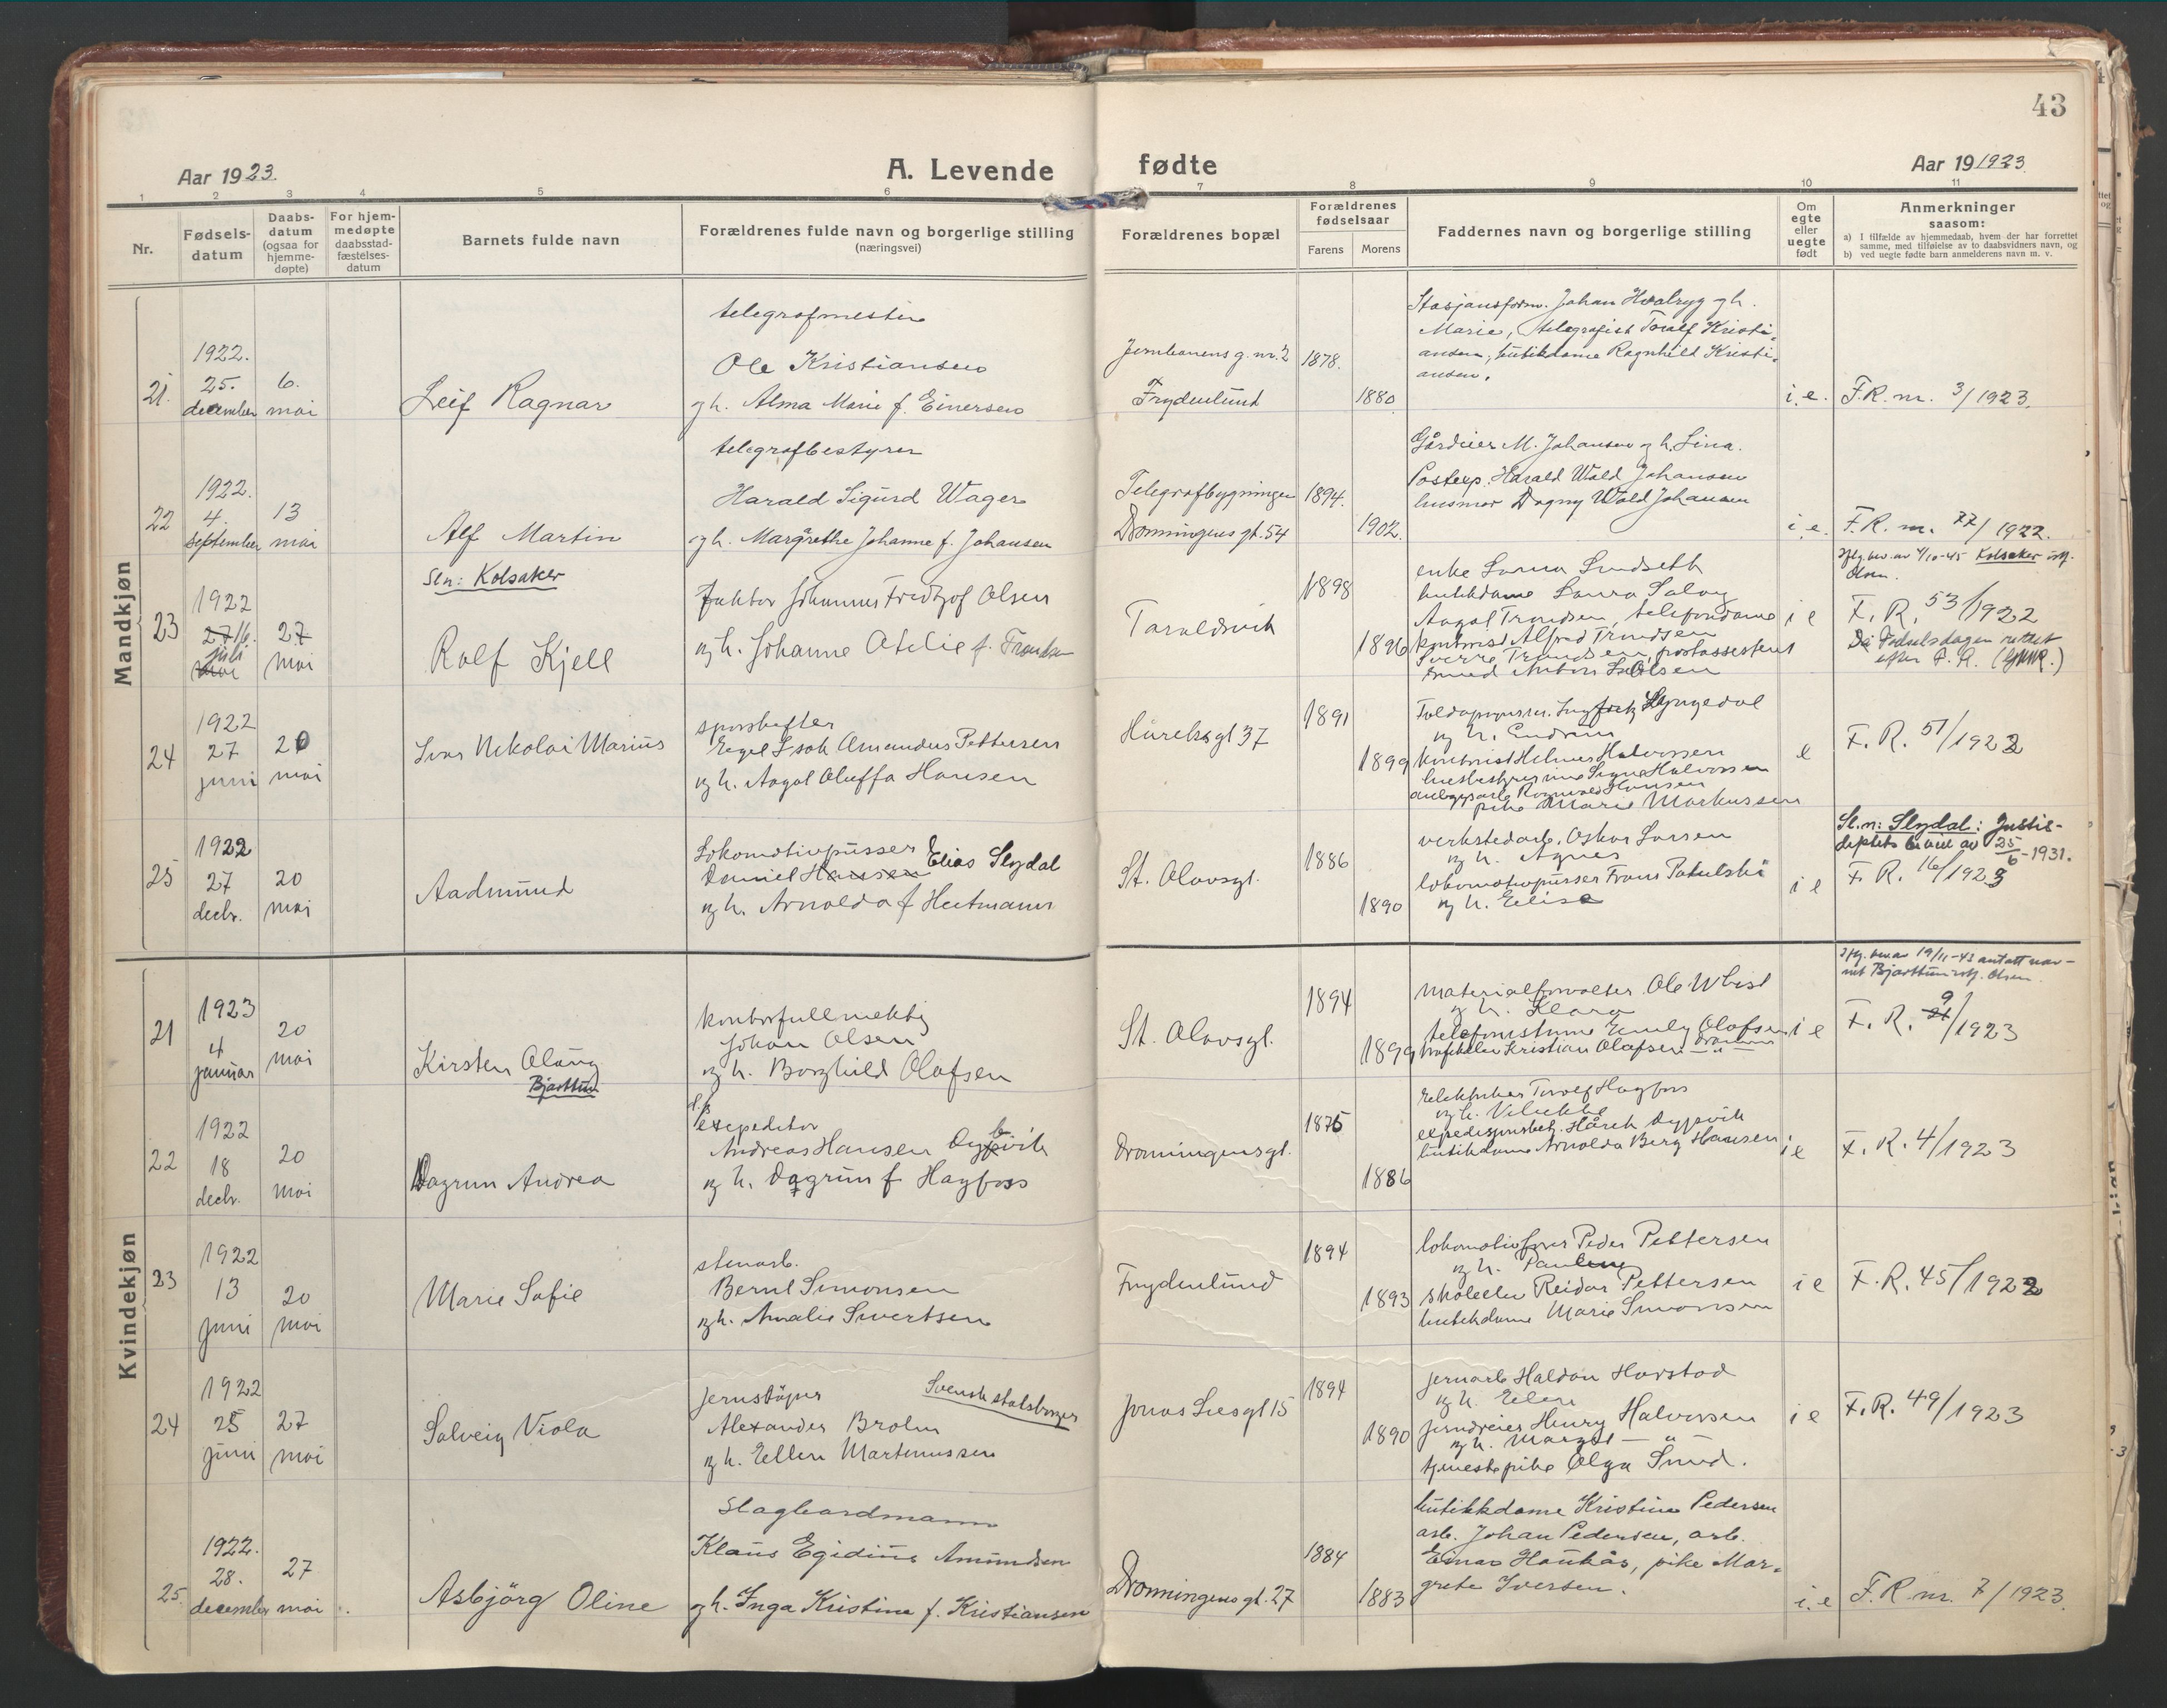 43
Aar 1923.
A. Levende
fødte
Aar 19 1923.
1 2 3 4 5 6 7 8 9 10 11
Nr.
Fødsels-
datum
Daabs-
datum
(ogsaa for
hjemme-
døpte)
For hjem-
medøpte
daabsstad-
fæstelses-
datum
Barnets fulde navn
Forældrenes fulde navn og borgerlige stilling
(næringsvei)
Forældrenes bopæl
Forældrenes
fødselsaar
Farens
Morens
Faddernes navn og borgerlige stilling
Om
egte
eller
uegte
født
Anmerkninger
saasom:
a) I tilfælde av hjemmedaab, hvem der har forrettet
samme, med tilføielse av to daabsvidners navn, og
b) ved uegte fødte barn anmelderens navn m. v.
Mandkjøn
21.
1922.
25.
december
6.
mai
Leif Ragnar
telegrafmester
Ole Kristiansen
og h. Alma Marie f. Einersen
Jernbanens g. nr. 2
Frydenlund
1878.
1880
Stasjonsform. Johan Hvalryg og h.
Marie, telegrafist Toralf Kristi-
ansen, butikdame Ragnhild Kristi-
ansen.
i. e.
F.R. nr. 3/1923.
22
1922.
4.
september
13
mai
Alf Martin
telegrafbestyrer
Harald Sigurd Wager
og h. Margrethe Johanne f. Johansen
Telegrafbygningen
Dronningens gt. 54
1894.
1902.
Gårdeier M. Johansen og h. Lina.
Posteksp. Harald Wold Johansen
husmor Dagny Wold Johansen
i. e.
F.R. nr. 77/1922.
23
1922
27 16.
juli
mai
27
mai
Sln: Kolsaker
Rolf Kjell
Faktor Johannes Fredthjof Olsen
og h. Johanne Otelie f. Trondsen
Taraldsvik
1898
1896
enke Lorna Sundseth
butikdame Laura Salvig
Aagot Trondsen, telefondame
kontorist Alfred Trondsen
Sverre Trondsen, postassistent
i e
Iflg. bev. av 4/10-45 Kolsaker istf.
Olsen.
F. R. 53/1922
Fødselsdagen rettet
efter F. R.
24
1922
27
juni
20
mai
Ivar Nikolai Marius
sporskifter
Eigil Isak Amandus Pettersen
og h. Aagot Oluffa Hansen
Håreksgt 37
1891
1899
og h. Gudrun
kontorist Helmer Halvorsen
husbestyrerinne Signe Halvorsen
pike Marie Markussen
e
F. R. 51/1922
25
1922
27
decbr.
20
mai
Aadmund
Lokomotivpusser
Daniel Hansen Elias Slydal
og h. Arnolda f Heitmann
St. Olavsgt.
1886
1890
verkstedarb. Oskar Larsen
og h. Agnes
lokomotivpusser Frans Pakulski
og h. Elise
i e
Sl.n: Slydal: Justis-
deptets bevill av 25/6-1931.
F. R. 16/1923
Kvindekjøn
21
1923
4
januar
20
mai
Kirsten Olaug
Bjarttun
kontorfullmektig
Johan Olsen
og h. Borghild Olafsen
St. Olavsgt.
1894
1899
Materialforvalter Ole Wbist
og h. Klara
telefonistinne Emily Olafsen
Kristian Olafsen
i e
Iflg. bev. av 19/11-43 antatt nav-
net Bjarttun istf. Olsen.
F. R. 9/1923
22
1922
18
decbr.
20
mai
Dagrun Andrea
d.s.
expeditør
Andreas Hansen Dypvik
og h. Dagrun f Hagfoss
Dronningensgt.
1875
1886
Elektriker Torolf Hagfoss
og h. Vibekke
expedisjonsbet. Hårek Dypvik
butikdame Arnolda Berg Hansen
i e
F. R. 4/1923
23
1922
13
juni
20
mai
Marie Sofie
stenarb.
Bernt Simonsen
og h. Amalie Sivertsen
Frydenlund
1894
1893
lokomotivfører Peder Pettersen
og h. Pauline
skoleelev Reidar Pettersen
butikdame Marie Simonsen
i e
F. R. 45/1922
24
1922
25
juni
27
mai
Solveig Viola
jernstøper
Svensk statsborger
Alexander Brolin
og h. Ellen Martinussen
Jonas Liesgt 15
1894
1890
jernarb Haldan Harstad
og h. Ellen
jerndreier Henry Halvorsen
og h. Margit — " —
tjenestepike Olga Smud.
i e
F. R. 49/1923
25.
1922.
28.
december
27
mai
Asbjörg Oline
Slagbordmann
Klaus Egidius Amundsen
og h. Inga Kristine f. Kristiansen
Dronningens gt. 27
1884
1883
butikkdame Kristine Pedersen
arb. Johan Pedersen, arb.
Einar Haukås, pike Mar-
grete Iversen.
i. e
F. R. nr. 7/1923.